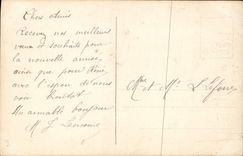 Chers Amis
Recevez nos meilleurs
vœux et souhaits pour
la nouvelle année
ainsi que pour René,
avec l'espoir de nous
voir bientôt
Un aimable bonjour
M L
Mme et Mr